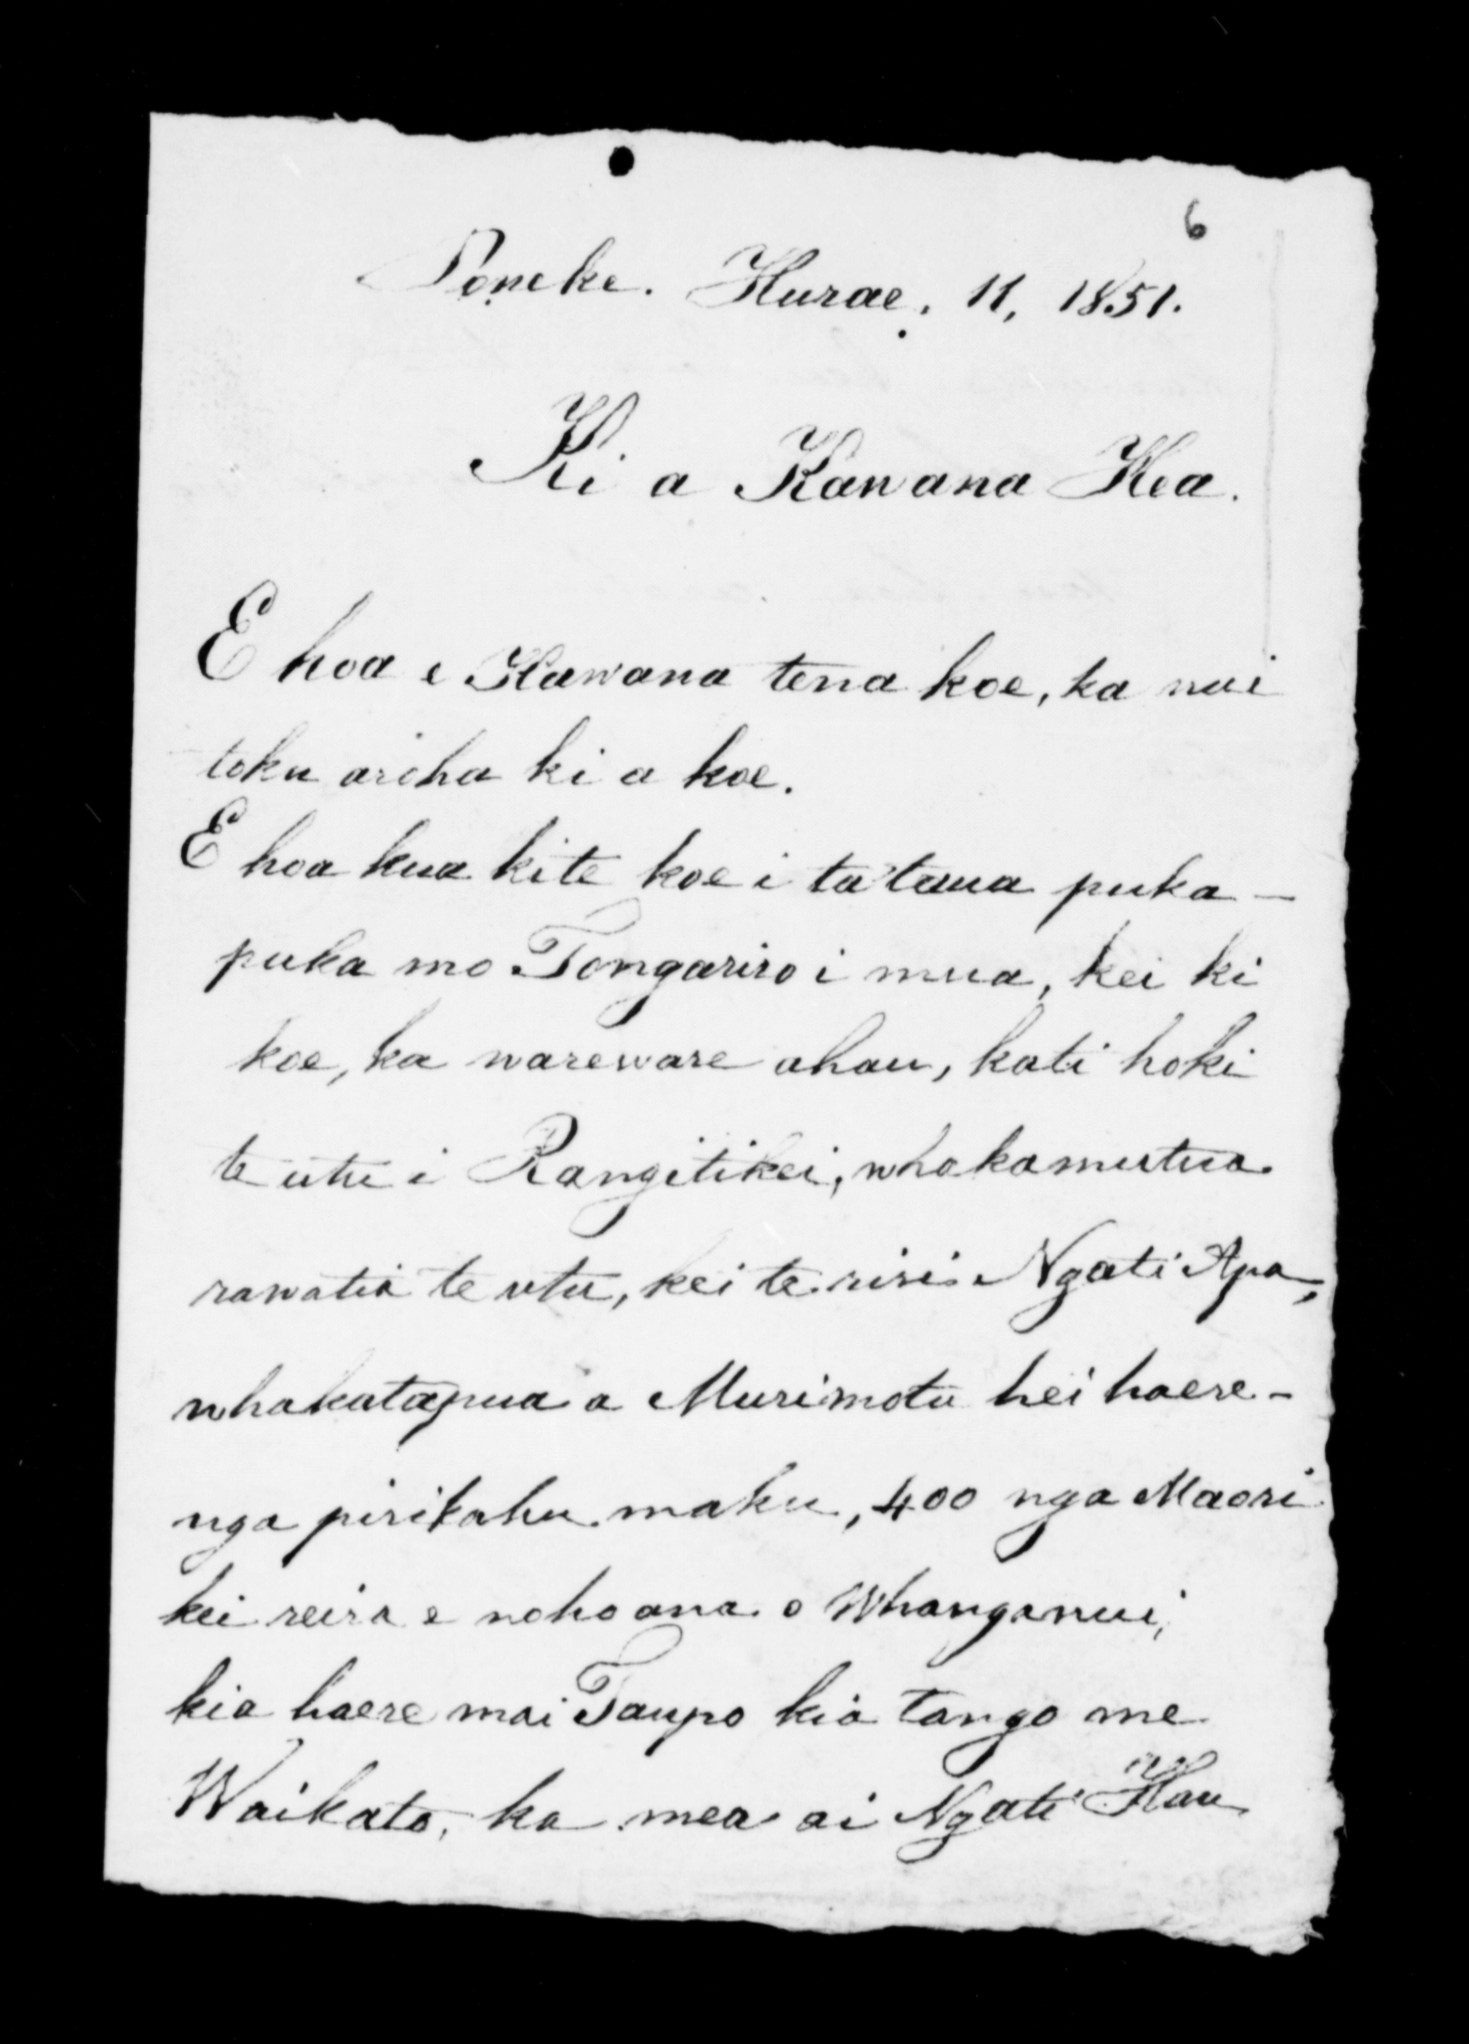 6
Poneke. Hurae, 11, 1851.
Ki a Kawana Kea.
E hoa e Kawana tena koe, ka nui
toku aroha ki a koe.
E hoa kua kite koe i ta taua puka-
puka mo Tongariro i mua, kei ki
koe, ka wareware ahau, kati hoki
te utu i Rangitikei, whakamutua
rawatia te utu, kei te riri Ngati Apa,
whakatapua a Murimotu hei haere-
nga pirikahu maku, 400 nga Maori
kei reira e noho ana o Whanganui,
kia haere mai Taupo kia tango me
Waikato, ka mea ai Ngati Hau